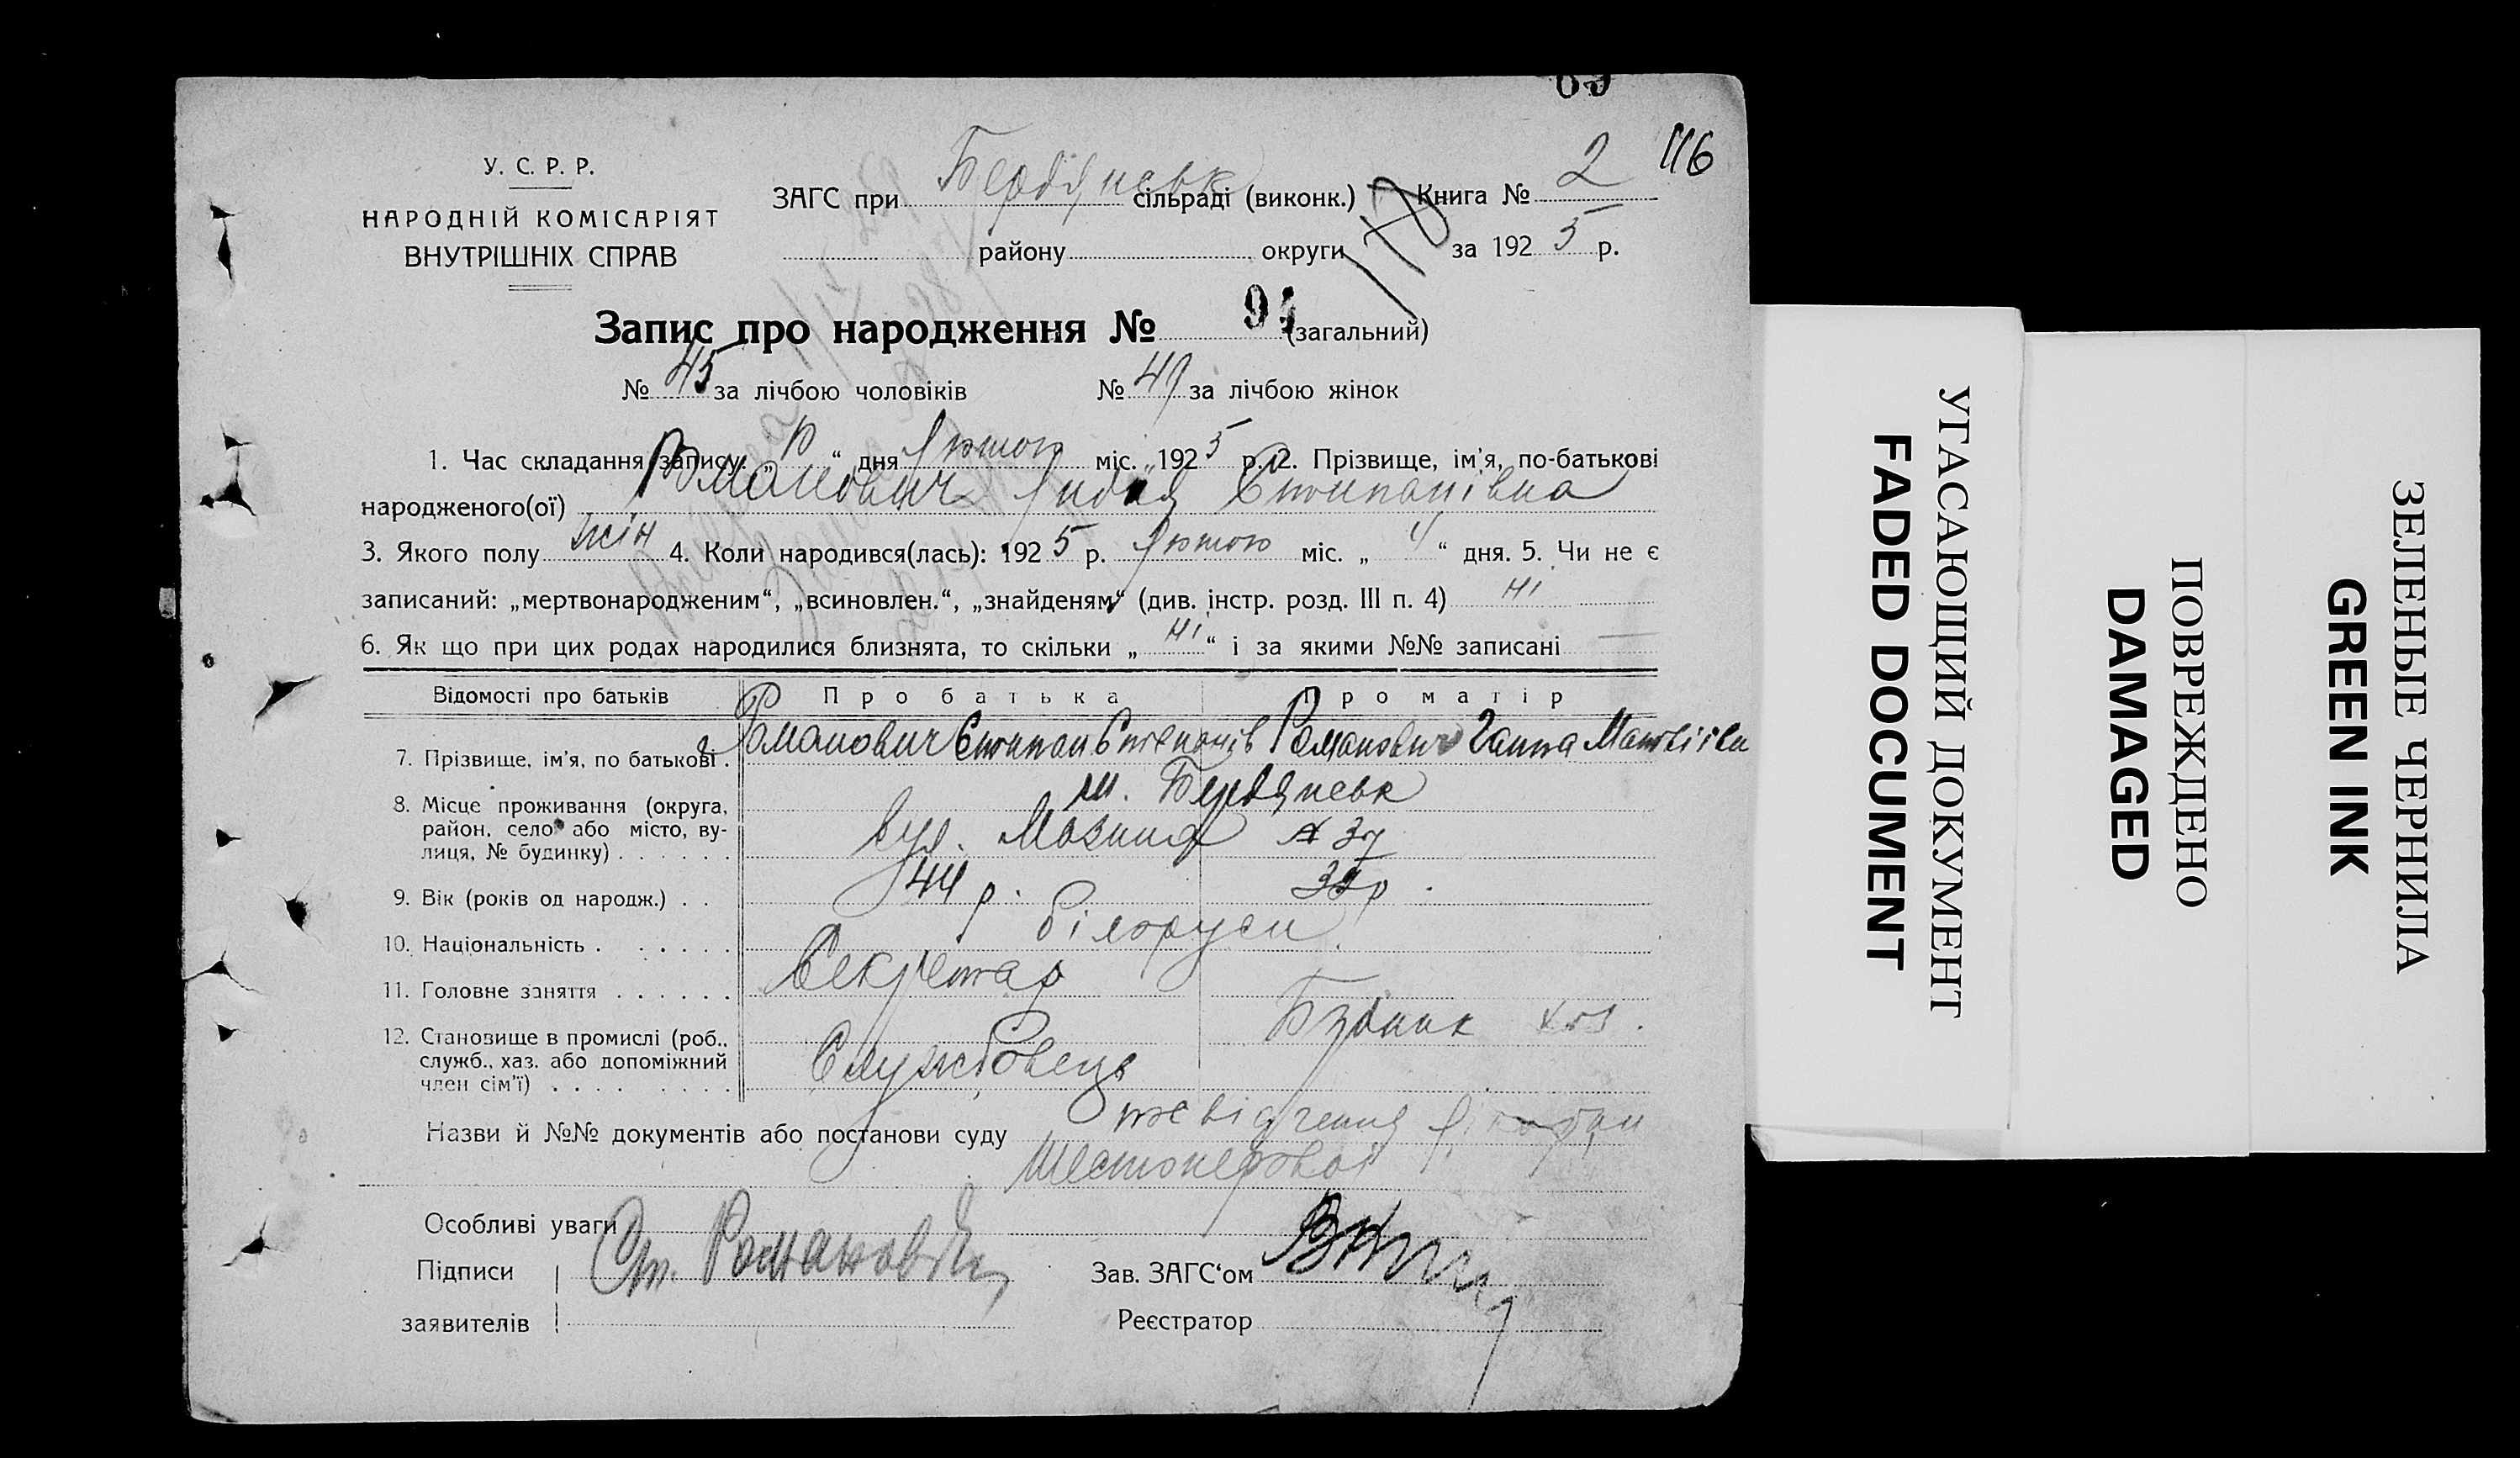 116
У. С. Р. Р.
НАРОДНІЙ КОМІСАРІЯТ
ВНУТРІШНІХ СПРАВ
ЗАГС при Бердянськ сільраді (виконк.) Книга № 2
району округи за 1925 р.
178
Запис про народження № 94 (загальний)
№ 45 за лічбою чоловіків № 49 за лічбою жінок
1. Час складання запису: „ “ дня лютого міс. 1925 р. 2. Прізвище, ім’я, по-батькові
народженого(ої) Романович Лидія Степанівна
3. Якого полу жін 4. Коли народився(лась): 1925 р. лютого міс. „4“ дня. 5. Чи не є
записаний: „мертвонародженим“, „всиновлен.“, „знайденям“ (див. інстр. розд. III п. 4) ні
6. Як що при цих родах народилися близнята, то скільки „ні“ і за якими №№ записані
Відомості про батьків Про батька Про матір
7. Прізвище, ім’я, по батькові . Романович Степан Степанів Романович Ганна Матвіївн
8. Місце проживання (округа, район, село або місто, вулиця, № будинку) . . . . . . м. Бердянськ
вул. Мазина № 37
9. Вік (років од народж.) . . 44 р. р.
10. Національність . . . . . . білоруси
11. Головне заняття . . . . . . Секретар
12. Становище в промислі (роб., служб., хаз. або допоміжний член сім’ї) . . . . . . . . Службовець
Назви й №№ документів або постанови суду посвідчення
Шестоперової
Особливі уваги
Підписи Ст. Романович Зав. ЗАГС‘ом
заявителів Реєстратор
УГАСАЮЩИЙ ДОКУМЕНТ
FADED DOCUMENT
ПОВРЕЖДЕНО
DAMAGED
ЗЕЛЕНЫЕ ЧЕРНИЛА
GREEN INK